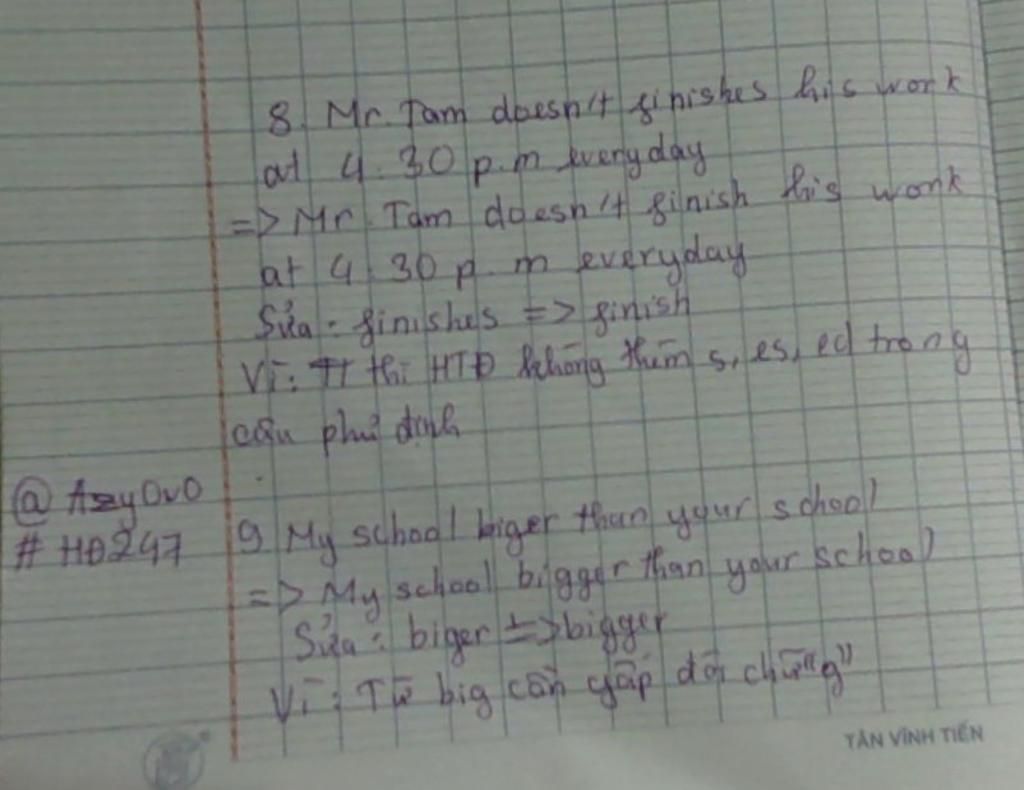 8. Mr. Tam doesn't finishes his work
at 4.30 p.m everyday
=> Mr. Tam doesn't finish his work
at 4.30 p.m everyday
Sửa: finishes => finish
Vì: thì HTĐ không thêm s, es, ed trong
câu phủ định
@ AzyOvO
# HĐ247
9 My school biger than your school
=> My school bigger than your school
Sửa: biger => bigger
Vì: Từ big cần gấp đôi chữ "g"
TÂN VĨNH TIẾN